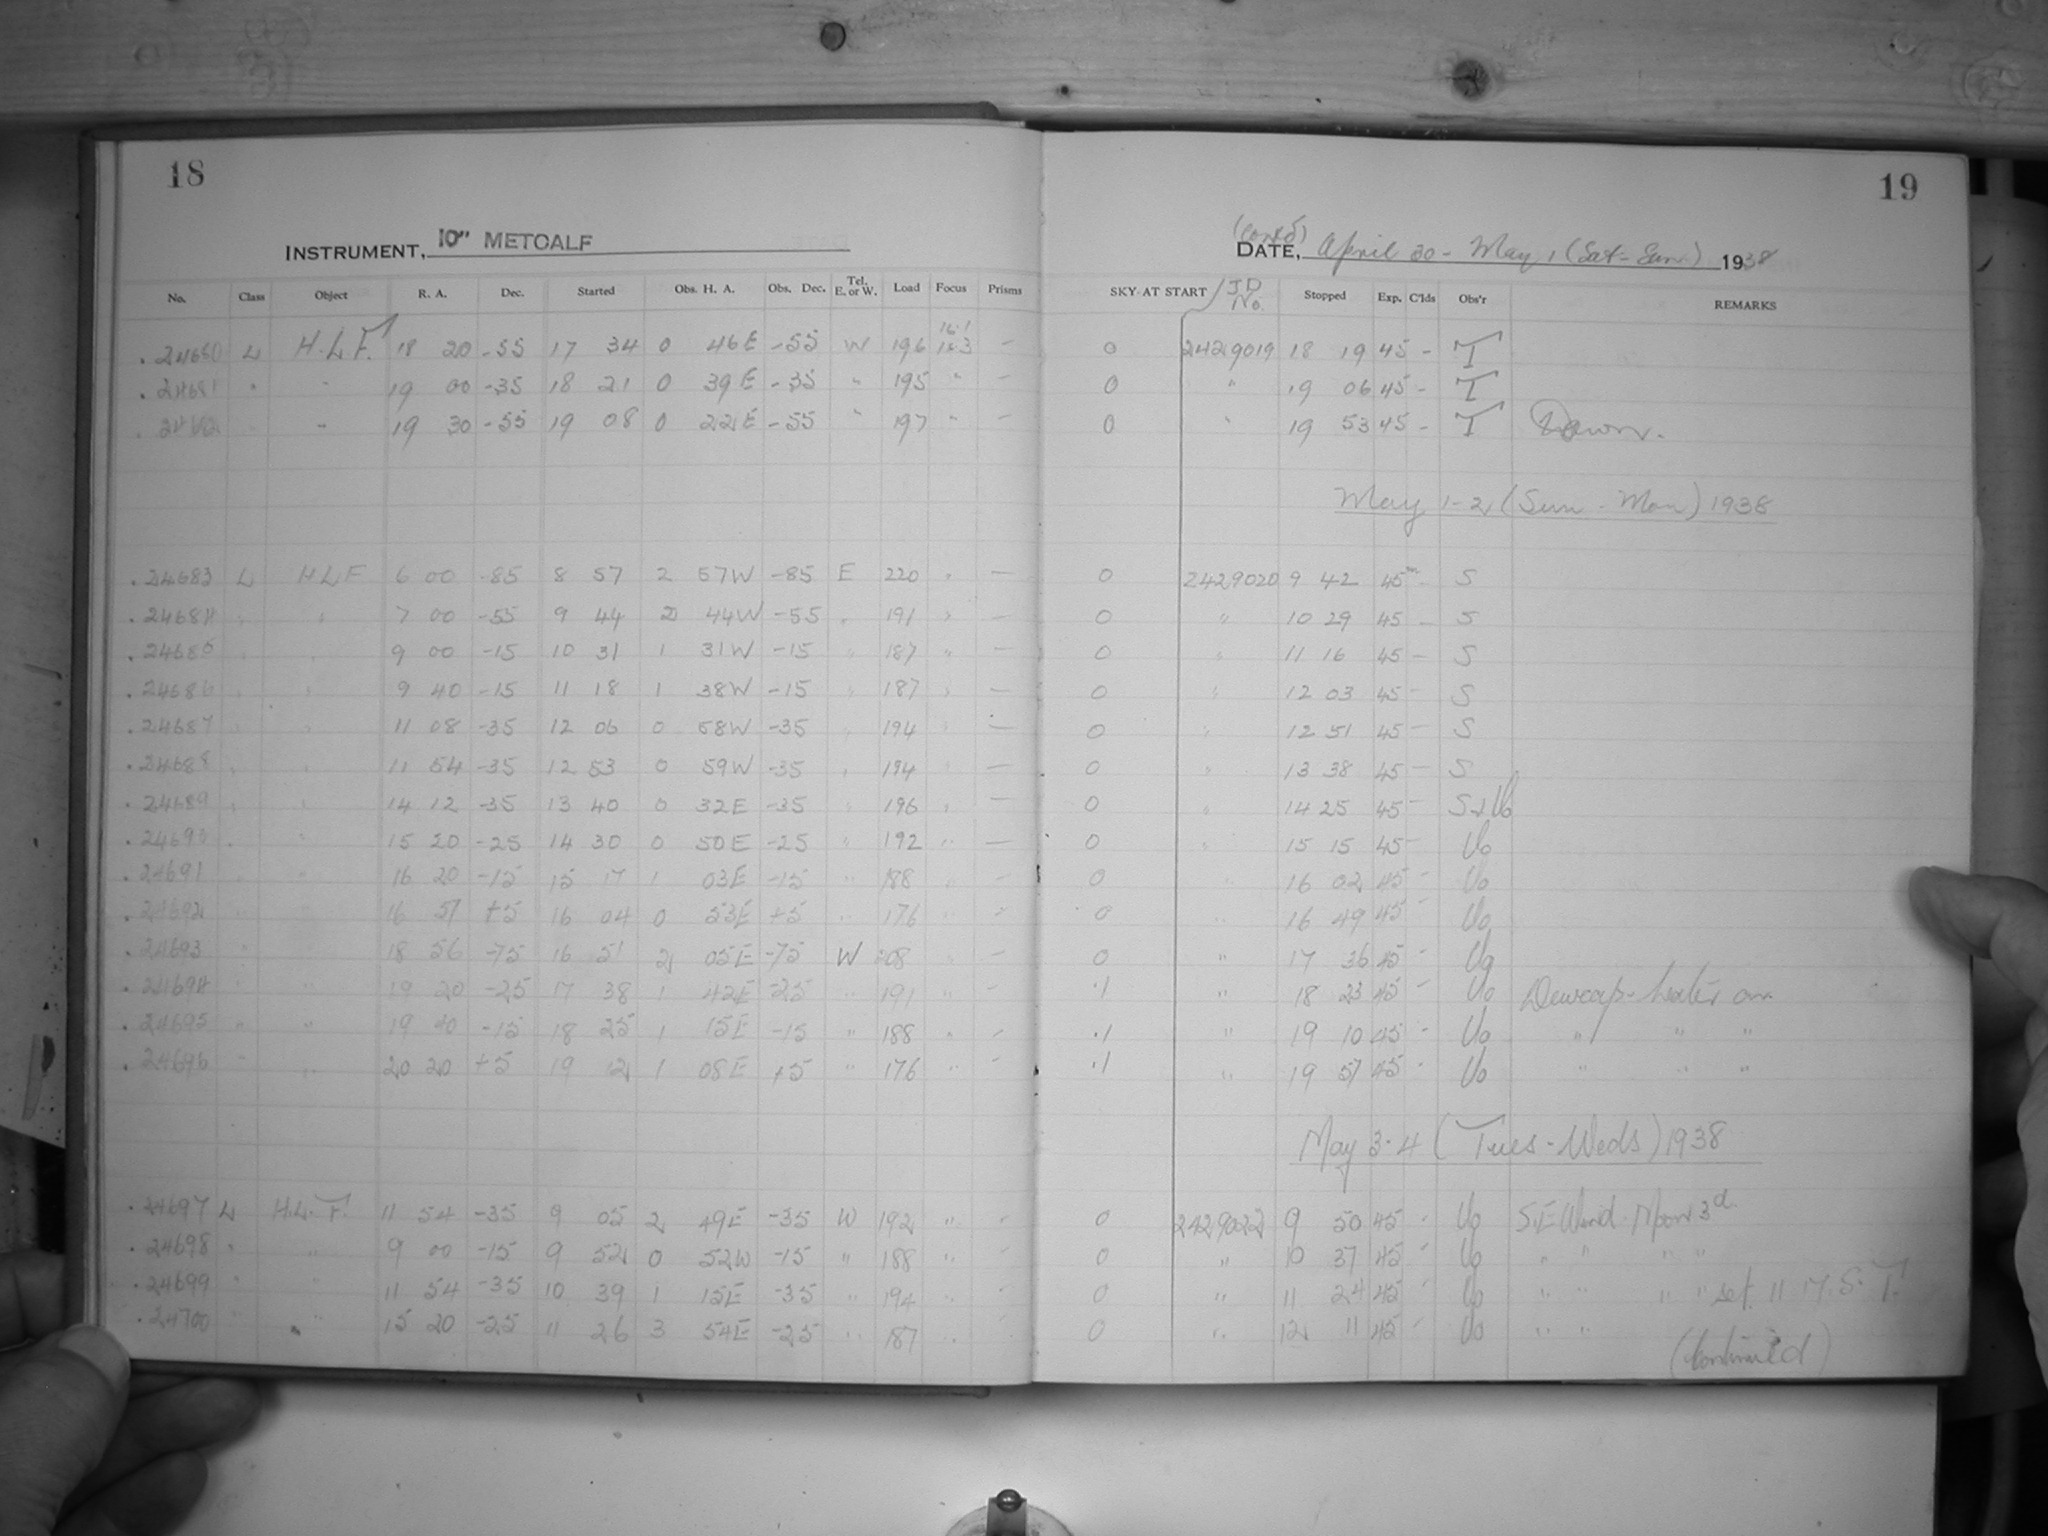 18
19
INSTRUMENT, 10" METCALF
(Cont'd)
DATE, April 30 - May 1 (Sat-Sun) 1938
No. Class Object R. A. Dec. Started Obs. H. A. Obs. Dec. Tel. E. or W. Load Focus Prisms SKY AT START J D No. Stopped Exp. C'lds Obs'r REMARKS
.24680 L H.L.F. 18 20 -55 17 34 0 46E -55 W 196 16.1 16.3 - 0 2429019 18 19 45 - T
.24681 " " 19 00 -35 18 21 0 39E -35 " 195 " - 0 " 19 06 45 - T
.24682 " 19 30 -55 19 08 0 22E -55 " 197 " - 0 " 19 53 45 - T Dawn.
May 1-2 (Sun - Mon) 1938
.24683 L H L F 6 00 -85 8 57 2 57W -85 E 220 " - 0 2429020 9 42 45m - S
.24684 " " 7 00 -55 9 44 2 44W -55 " 191 " - 0 " 10 29 45 - S
.24685 " " 9 00 -15 10 31 1 31W -15 " 187 " - 0 " 11 16 45 - S
.24686 " " 9 40 -15 11 18 1 38W -15 " 187 " - 0 " 12 03 45 - S
.24687 " " 11 08 -35 12 06 0 58W -35 " 194 " - 0 " 12 51 45 - S
.24688 " " 11 54 -35 12 53 0 59W -35 " 194 " - 0 " 13 38 45 - S
.24689 " " 14 12 -35 13 40 0 32E -35 " 196 " - 0 " 14 25 45 - S+Uo
.24690 " " 15 20 -25 14 30 0 50E -25 " 192 " - 0 " 15 15 45 - Uo
.24691 " " 16 20 -15 15 17 1 03E -15 " 188 " - 0 " 16 02 45 - Uo
.24692 " " 16 57 +5 16 04 0 53E +5 " 176 " - 0 " 16 49 45 - Uo
.24693 " " 18 56 -75 16 51 2 05E -75 W 208 " - 0 " 17 36 45 - Uo
.24694 " " 19 20 -25 17 38 1 42E -25 " 191 " - .1 " 18 23 45 - Uo Dewcap-heater on
.24695 " " 19 40 -15 18 25 1 15E -15 " 188 " - .1 " 19 10 45 - Uo " " "
.24696 " " 20 20 +5 19 12 1 08E +5 " 176 " - .1 " 19 57 45 - Uo " " "
May 3-4 (Tues - Weds) 1938
.24697 L H.L.F. 11 54 -35 9 05 2 49E -35 W 192 " - 0 2429022 9 50 45 - Uo S.E Wind. Moon 3d.
.24698 " " 9 00 -15 9 52 0 52W -15 " 188 " - 0 " 10 37 45 - Uo " " " "
.24699 " " 11 54 -35 10 39 1 15E -35 " 194 " - 0 " 11 24 45 - Uo " " " " set 11 17 S. T.
.24700 " " 15 20 -25 11 26 3 54E -25 " 187 " - 0 " 12 11 45 - Uo " "
(Continued)